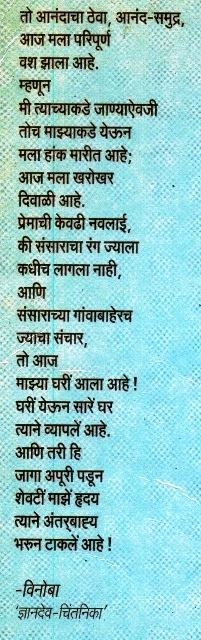 तो आनंदाचा ठेवा, आनंद-समुद्र,
आज मला परिपूर्ण
वश झाला आहे.
म्हणून
मी त्याच्याकडे जाण्याऐवजी
तोच माझ्याकडे येऊन
मला हांक मारीत आहे;
आज मला खरोखर
दिवाळी आहे.
प्रेमाची केवढी नवलाई,
की संसाराचा रंग ज्याला
कधीच लागला नाही,
आणि
संसाराच्या गांवाबाहेरच
ज्याचा संचार,
तो आज
माझ्या घरीं आला आहे !
घरीं येऊन सारें घर
त्याने व्यापलें आहे.
आणि तरी हि
जागा अपूरी पडून
शेवटीं माझें हृदय
त्याने अंतर्‌बाह्य
भरुन टाकलें आहे !
-विनोबा
'ज्ञानदेव-चिंतनिका'